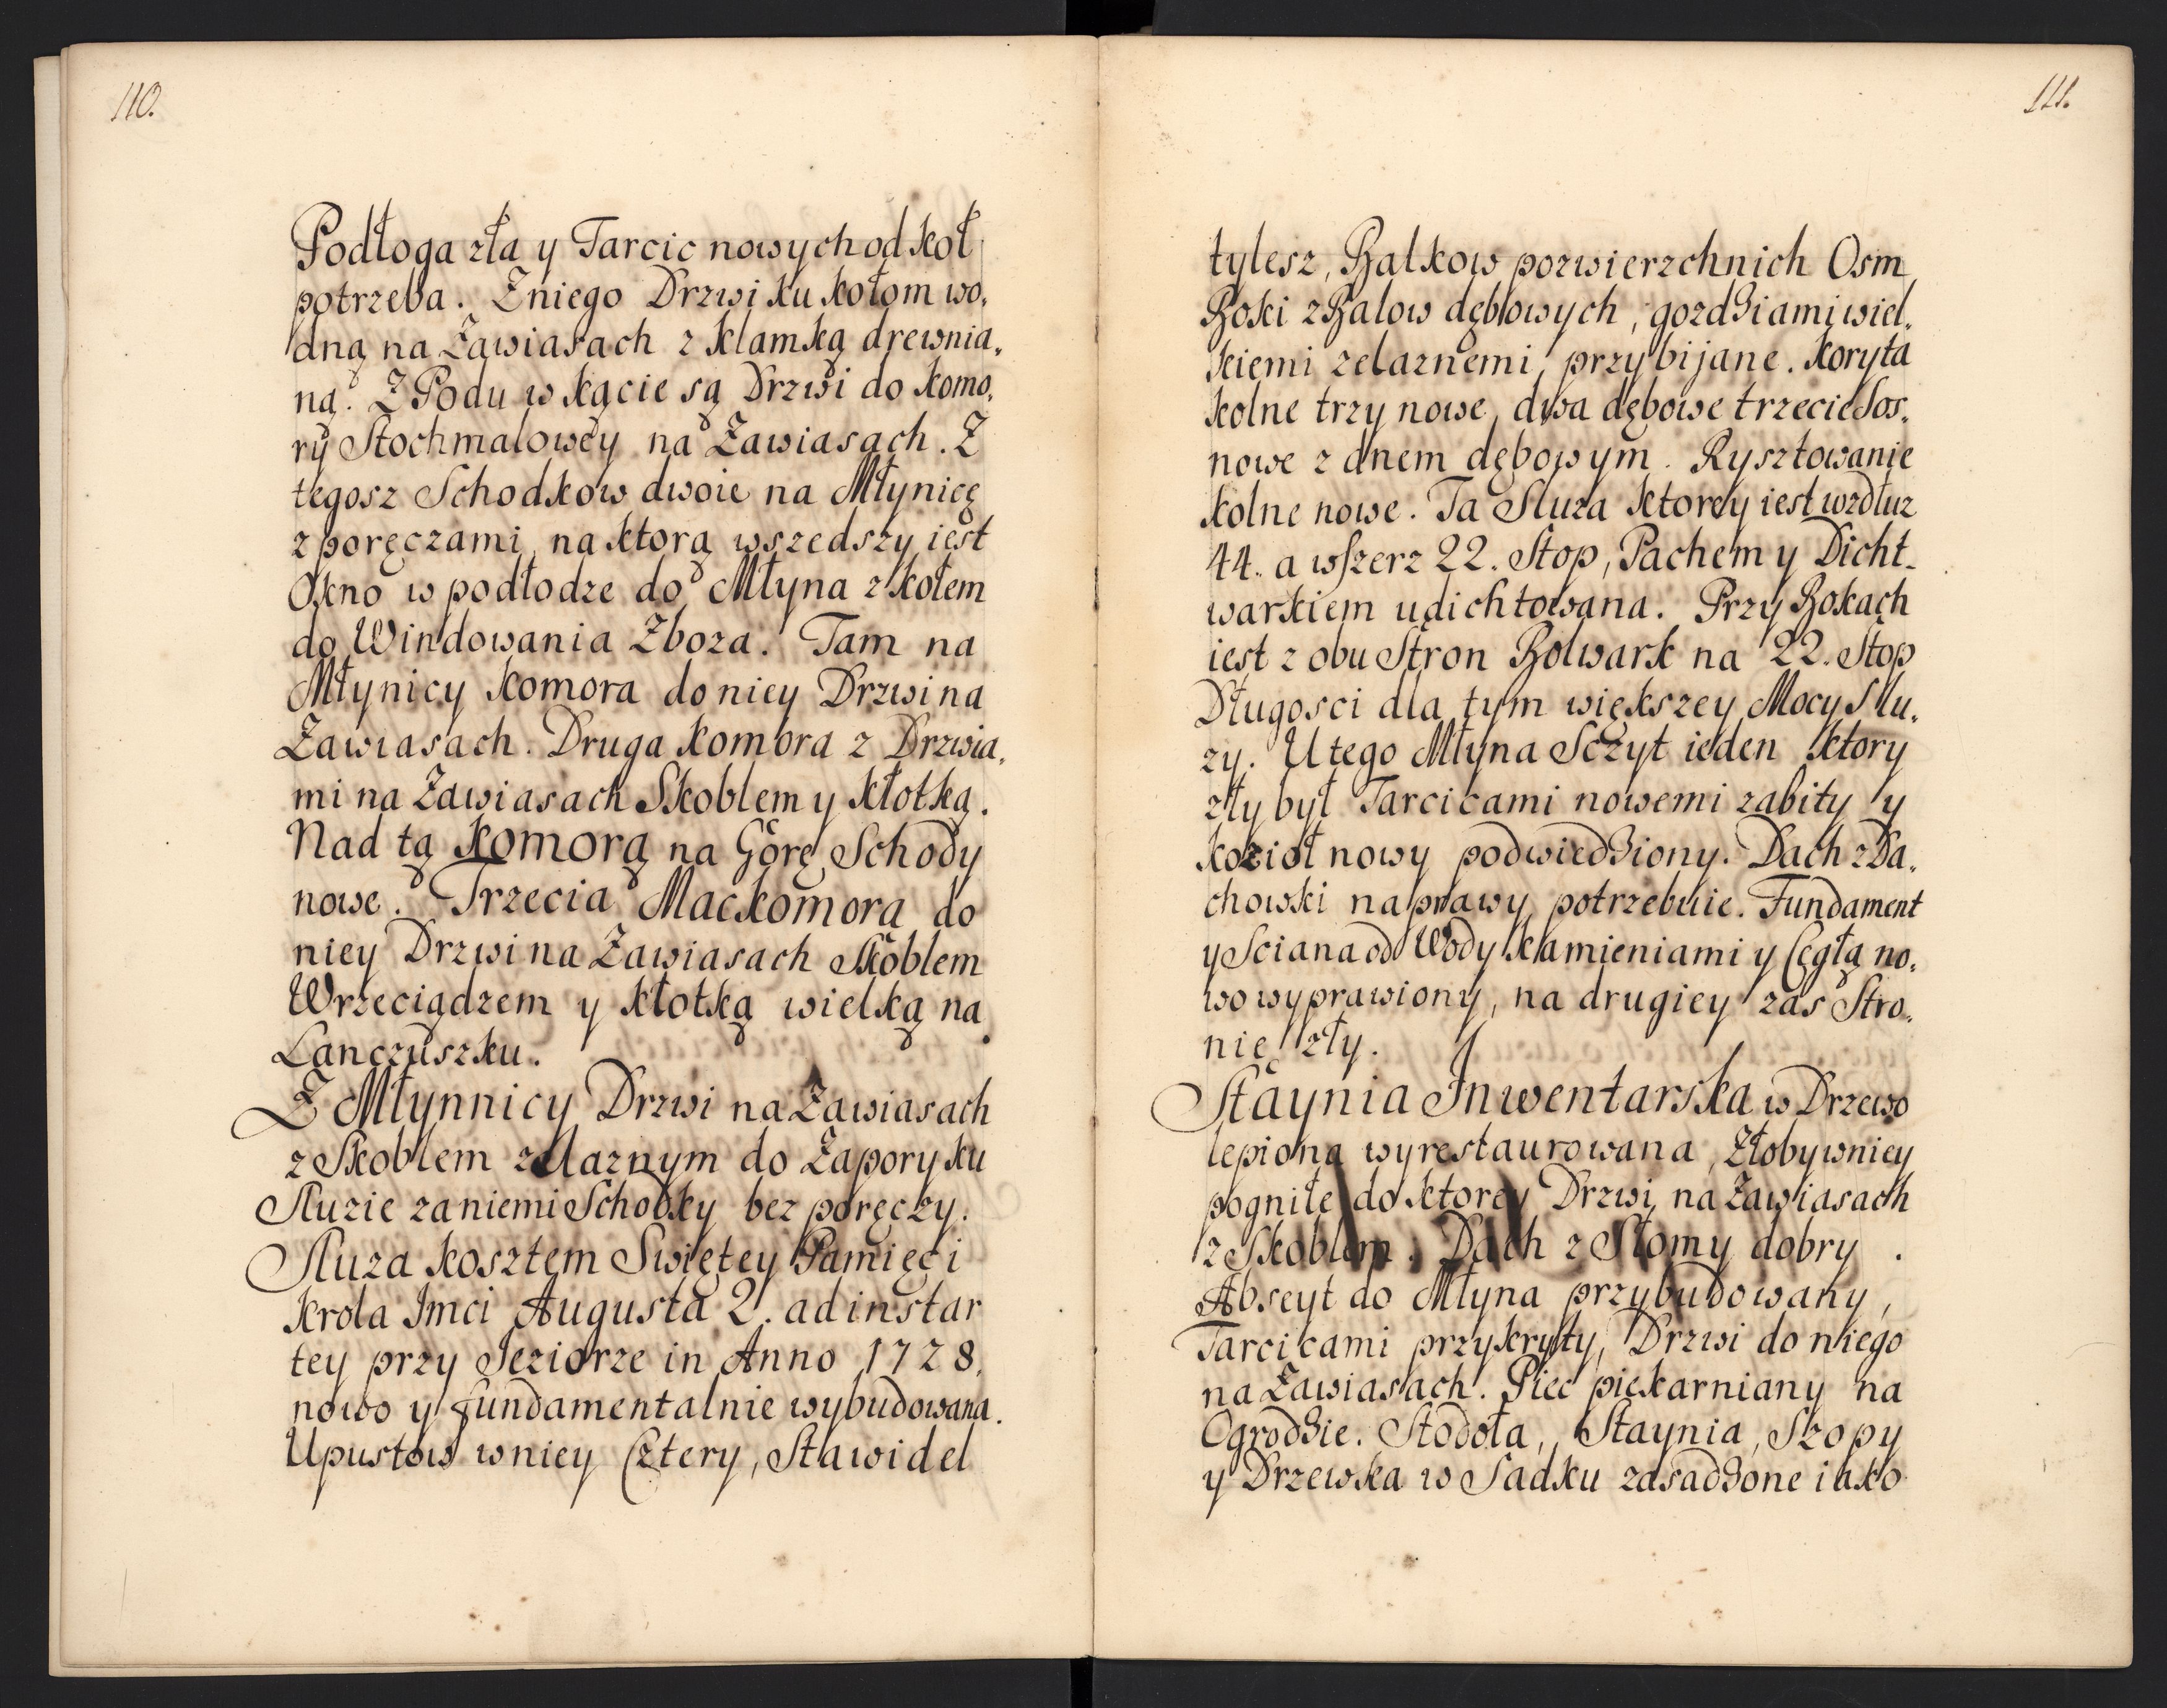 110.
Podłoga zła y Tarcic nowych od Koł
potrzeba. Zniego Drzwi ku kołom wo,
dną na Zawiasach z Klamką drewnia,
ną. Z Podu w kącie są Drzwi do Komo,
ry Stochmalowey na Zawiasach. Z
tegosz Schodkow dwoie na Młynicę
z poręczami, na ktorą wszedszy iest
Okno w podłodze do Młyna z kołem
do Windowania Zboza. Tam na
Młynicy Komora do niey Drzwi na
Zawiasach. Druga Komora z Drzwia,
mi na Zawiasach Skoblem y Kłotką.
Nad tą Komorą na Górę Schody
nowe. Trzecia Mackomora do
niey Drzwi na Zawiasach Skoblem
Wrzeciądzem y Kłotką wielką na
Lanczuszku.
Z Młynnicy Drzwi na Zawiasach
z Skoblem zelaznym do Zapory ku
Sluzie za niemi Schodky bez poręczy.
Sluza Kosztem Swiętey Pamięci
Krola Jmci Augusta 2. ad instar
tey przy Jeziorze in Anno 1728.
nowo y fundamentalnie wybudowana.
Upustow w niey Cztery, Stawidel
111.
tylesz, Balkow pozwierzchnich Osm
Boki z Balow dęblowych, gozdziami wiel,
kiemi zelaznemi, przybijane. Koryta
kolne trzy nowe, dwa dębowe trzecie Sos,
nowe z dnem dębowym. Rysztowanie
kolne nowe. Ta Sluza Ktorey iest wzdłuz
44. a wszerz 22. Stop, Pachem y Dicht-
warkiem udichtowana. Przy Bokach
iest z obu Stron Bolwark na 22. Stop
Długosci dla tym większey Mocy Slu,
zy. U tego Młyna Sczyt ieden Ktory
zły był Tarcicami nowemi zabity y
Kozioł nowy podwiedziony. Dach z Da,
chowski naprawy potrzebuie. Fundament
y Sciana od Wody Kamieniami y Cegłą no,
wo wyprawiony, na drugiey zas Stro,
nie zły.
Staynia Inwentarska w Drzewo
lepiona wyrestaurowana, Złoby w niey
pogniłe do Ktorey Drzwi na Zawiasach
z Skoblem. Dach z Słomy dobry.
Abseyt do Młyna przybudowany,
Tarcicami przykryty, Drzwi do niego
na Zawiasach. Piec piekarniany na
Ogrodzie. Stodoła, Staynia, Szopy
y Drzewka w Sadku zasadzone iako